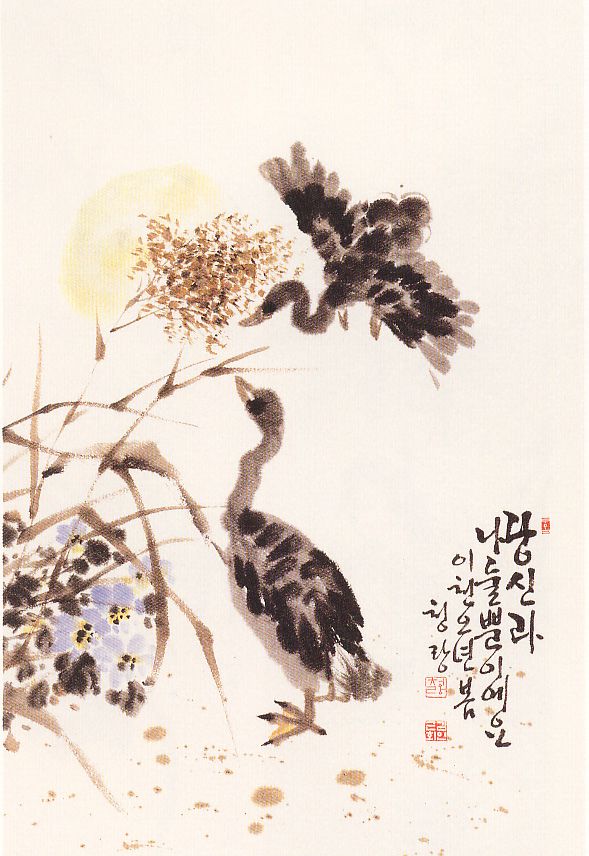 당신과
나 둘뿐이에요
이천오년 봄
청랑